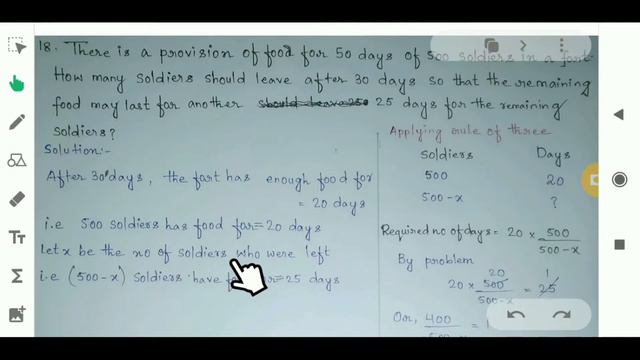 18. There is a provision of food for 50 days of 500 soldiers in a fort.
How many soldiers should leave after 30 days so that the remaining
food may last for another 25 days for the remaining
soldiers?
Solution:-
After 30 days, the fort has enough food for
= 20 days
i.e 500 soldiers has food for = 20 days
Let x be the no of soldiers who were left
i.e (500-x) soldiers have for = 25 days
Applying rule of three
Soldiers Days
500 20
500-x ?
Required no of days = 20 × 500/500-x
By problem
20 1
20 × 500/500-x = 25
Or, 400/500-x =